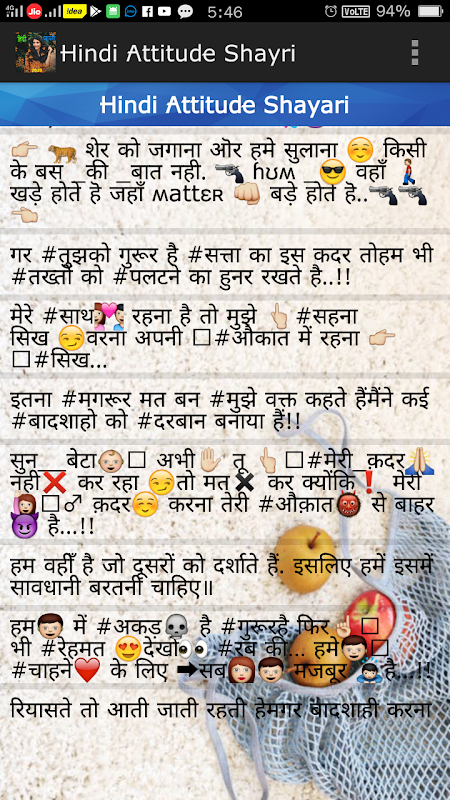 4G Jio idea VoLTE 5:46 94%
Hindi Attitude Shayri
Hindi Attitude Shayari
👉 🐅 शेर को जगाना और हमे सुलाना ☺️ किसी
के बस _ की _ बात नही. 🔫 ɦʊʍ _ 😎 वहाँ 🚶
खड़े होते हे जहाँ ʍattɛʀ 👊 बड़े होते हे..🔫🔫
👈
गर #तुझको गुरूर है #सत्ता का इस कदर तोहम भी
#तख्तों को #पलटने का हुनर रखते है..!!
मेरे #साथ💏 रहना है तो मुझे 👆#सहना
सिख 😏वरना अपनी □#औकात में रहना 👉
□#सिख...
इतना #मगरूर मत बन #मुझे वक्त कहते हैंमैंने कई
#बादशाहो को #दरबान बनाया हैं!!
सुन__बेटा👶□ अभी✋ तू 👆□#मेरी_क़दर🙏
नही❌ कर रहा 😏तो मत✖ कर क्योंकि❗ मेरी
👩□♂ क़दर☺️ करना तेरी #औक़ात👹 से बाहर
😈 है...!!
हम वहीँ है जो दूसरों को दर्शाते हैं. इसलिए हमें इसमें
सावधानी बरतनी चाहिए॥
हम👦 में #अकड़💀 है #गुरूरहै फिर☝□
भी #रेहमत 😍देखो👀 #रब की... हमे👦□
#चाहने❤️ के लिए ➡सब👩👦 मजबूर 🙇है...!!
रियासते तो आती जाती रहती हेमगर बादशाही करना